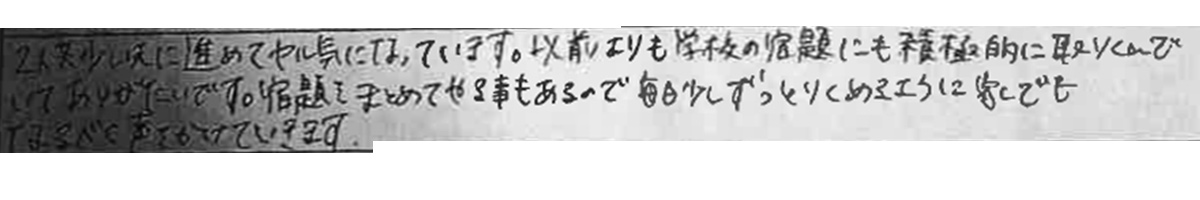 に進めてヤル気になっています。以前よりも学校の宿題にも積極的に取りくんで
いてありがたいです。宿題をまとめてやる事もあるので毎日少しずつとりくめるように家でも
なるべく声をかけていきます.